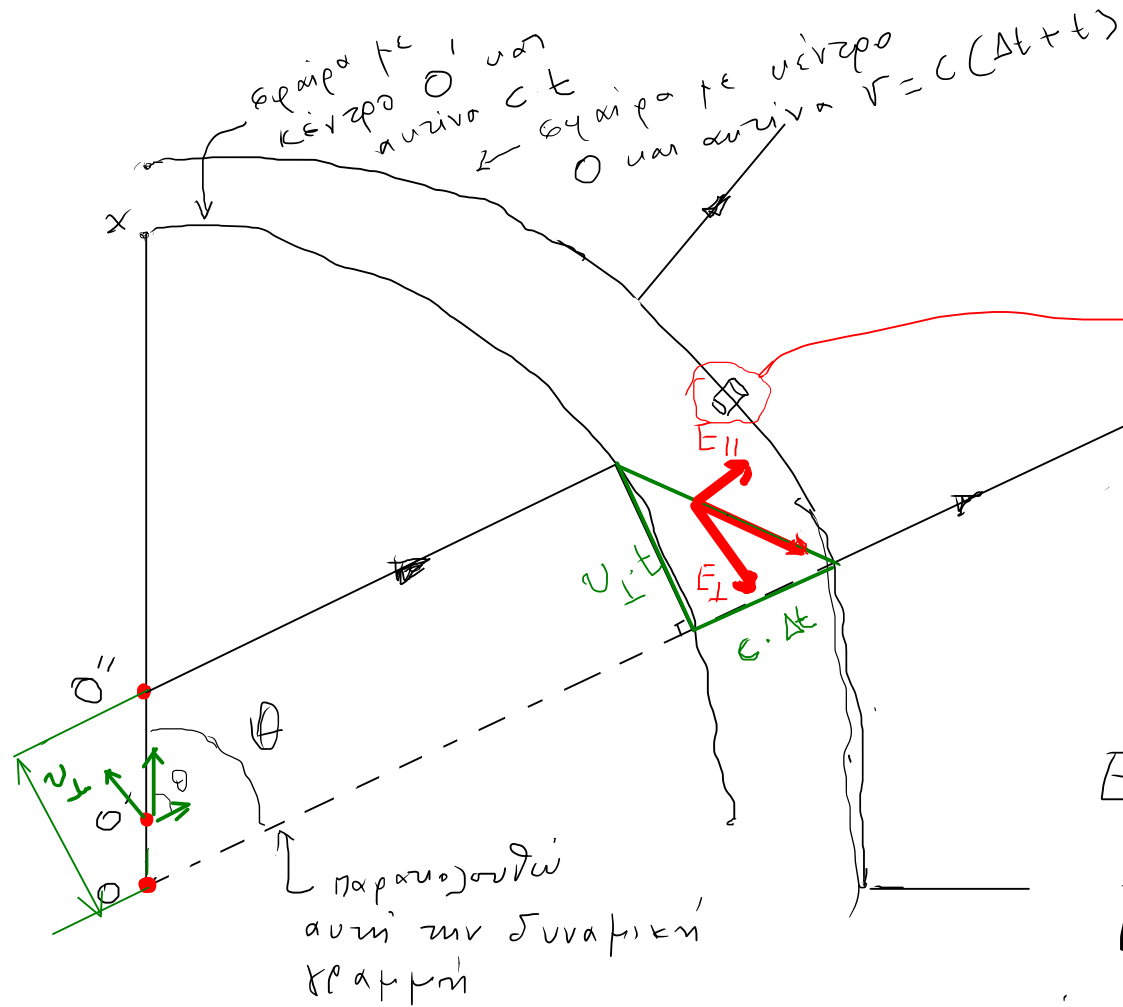 σφαίρα με
κέντρο O' και
ακτίνα c·t
σφαίρα με κέντρο
O και ακτίνα r = c(Δt + t)
x
E||
E⊥
υ⊥·t
c·Δt
O''
θ
υ⊥
θ
O'
O
παρακολουθώ
αυτή την δυναμική
γραμμή
E